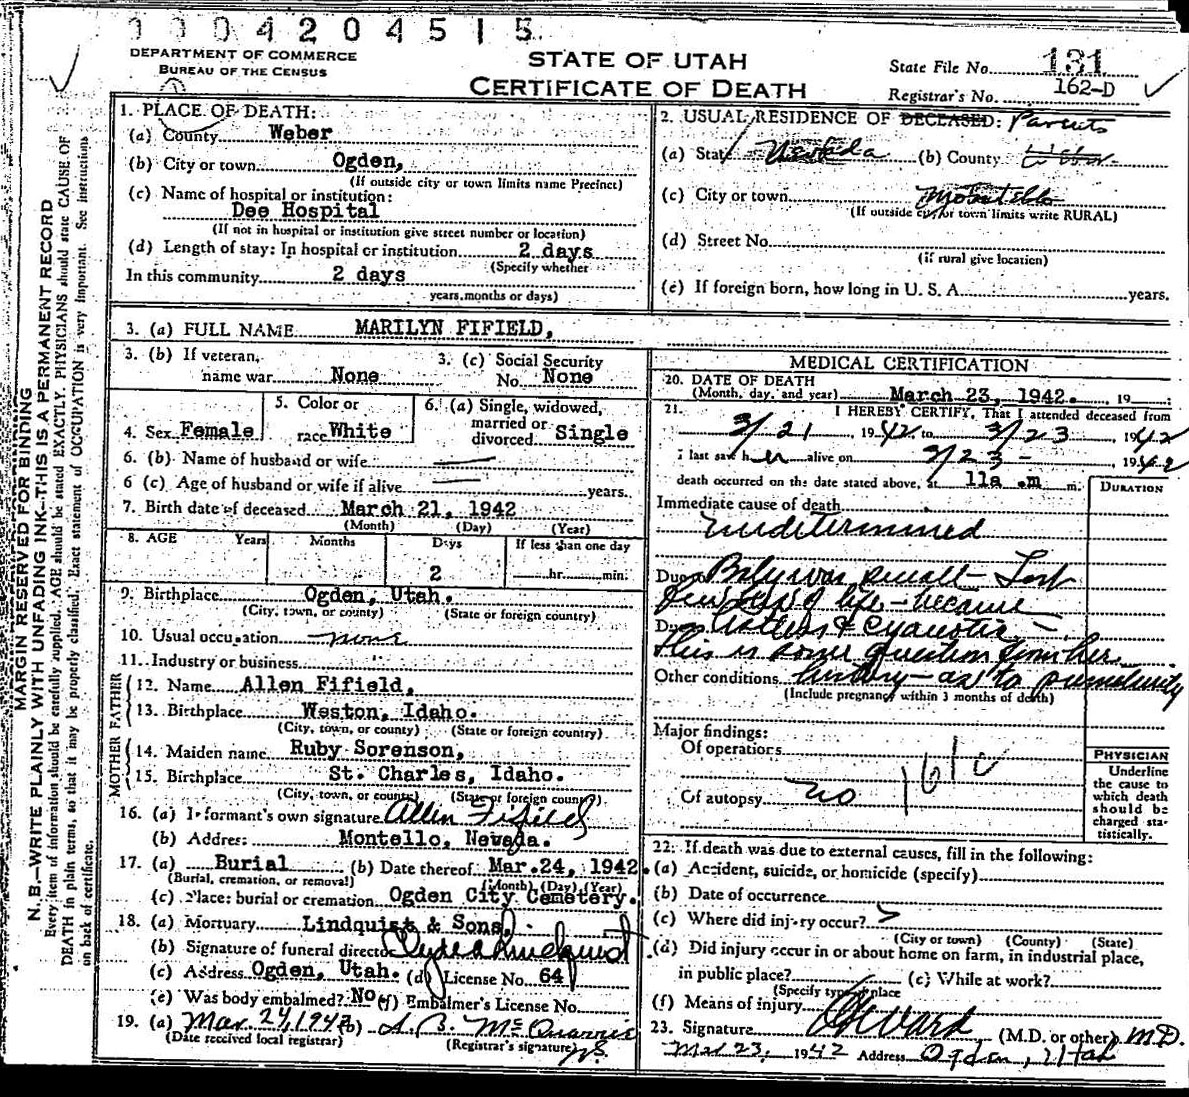 0 0 0 4 2 0 4 5 1 5
DEPARTMENT OF COMMERCE
BUREAU OF THE CENSUS
STATE OF UTAH
CERTIFICATE OF DEATH
State File No. 131
Registrar's No. 162-D
MARGIN RESERVED FOR BINDING
N. B.—WRITE PLAINLY WITH UNFADING INK—THIS IS A PERMANENT RECORD
Every item of information should be carefully supplied. AGE should be stated EXACTLY. PHYSICIANS should state CAUSE OF
DEATH in plain terms, so that it may be properly classified. Exact statement of OCCUPATION is very important. See instructions
on back of certificate.
1. PLACE OF DEATH:
(a) County Weber
(b) City or town Ogden,
(If outside city or town limits name Precinct)
(c) Name of hospital or institution:
Dee Hospital
(If not in hospital or institution give street number or location)
(d) Length of stay: In hospital or institution 2 days
(Specify whether
In this community 2 days
years, months or days)
2. USUAL RESIDENCE OF DECEASED: Parents
(a) State Nevada (b) County
(c) City or town Montello
(If outside city or town limits write RURAL)
(d) Street No.
(if rural give location)
(e) If foreign born, how long in U. S. A. years.
3. (a) FULL NAME MARILYN FIFIELD,
3. (b) If veteran, name war None
3. (c) Social Security No. None
4. Sex Female
5. Color or race White
6. (a) Single, widowed, married or divorced Single
6. (b) Name of husband or wife
6 (c) Age of husband or wife if alive years.
7. Birth date of deceased March 21, 1942
(Month) (Day) (Year)
8. AGE Years Months Days If less than one day
2 hr. min.
9. Birthplace Ogden, Utah.
(City, town, or county) (State or foreign country)
10. Usual occupation none
11. Industry or business
FATHER
12. Name Allen Fifield,
13. Birthplace Weston, Idaho.
(City, town, or county) (State or foreign country)
MOTHER
14. Maiden name Ruby Sorenson,
15. Birthplace St. Charles, Idaho.
(City, town, or county) (State or foreign country)
16. (a) Informant's own signature Allen Fifield
(b) Address Montello, Nevada.
17. (a) Burial (b) Date thereof Mar. 24, 1942
(Burial, cremation, or removal) (Month) (Day) (Year)
(c) Place: burial or cremation Ogden City Cemetery.
18. (a) Mortuary Lindquist & Sons,
(b) Signature of funeral director Clyde Lindquist
(c) Address Ogden, Utah. (d) License No. 64
(e) Was body embalmed? No (f) Embalmer's License No.
19. (a) Mar. 24, 1942 (b) McQuarrie
(Date received local registrar) (Registrar's signature)
MEDICAL CERTIFICATION
20. DATE OF DEATH
(Month, day, and year) March 23, 1942. , 19
21. I HEREBY CERTIFY, That I attended deceased from
3/21, 1942, to 3/23, 1942
I last saw her alive on 3/23-, 1942
death occurred on the date stated above, at 11a .m m.
DURATION
Immediate cause of death
Undetermined
Due to Baby was small - Lost
few of life - became
Due to listless & cyanotic -
This is some question from her
Other conditions history - as to prematurity
(Include pregnancy within 3 months of death)
Major findings:
Of operations
Of autopsy no
PHYSICIAN
Underline
the cause to
which death
should be
charged sta-
tistically.
22. If death was due to external causes, fill in the following:
(a) Accident, suicide, or homicide (specify)
(b) Date of occurrence
(c) Where did injury occur?
(City or town) (County) (State)
(d) Did injury occur in or about home on farm, in industrial place,
in public place? (e) While at work?
(Specify type place
(f) Means of injury
23. Signature Ward (M.D. or other) M.D.
Mar 23, 1942 Address Ogden, Utah